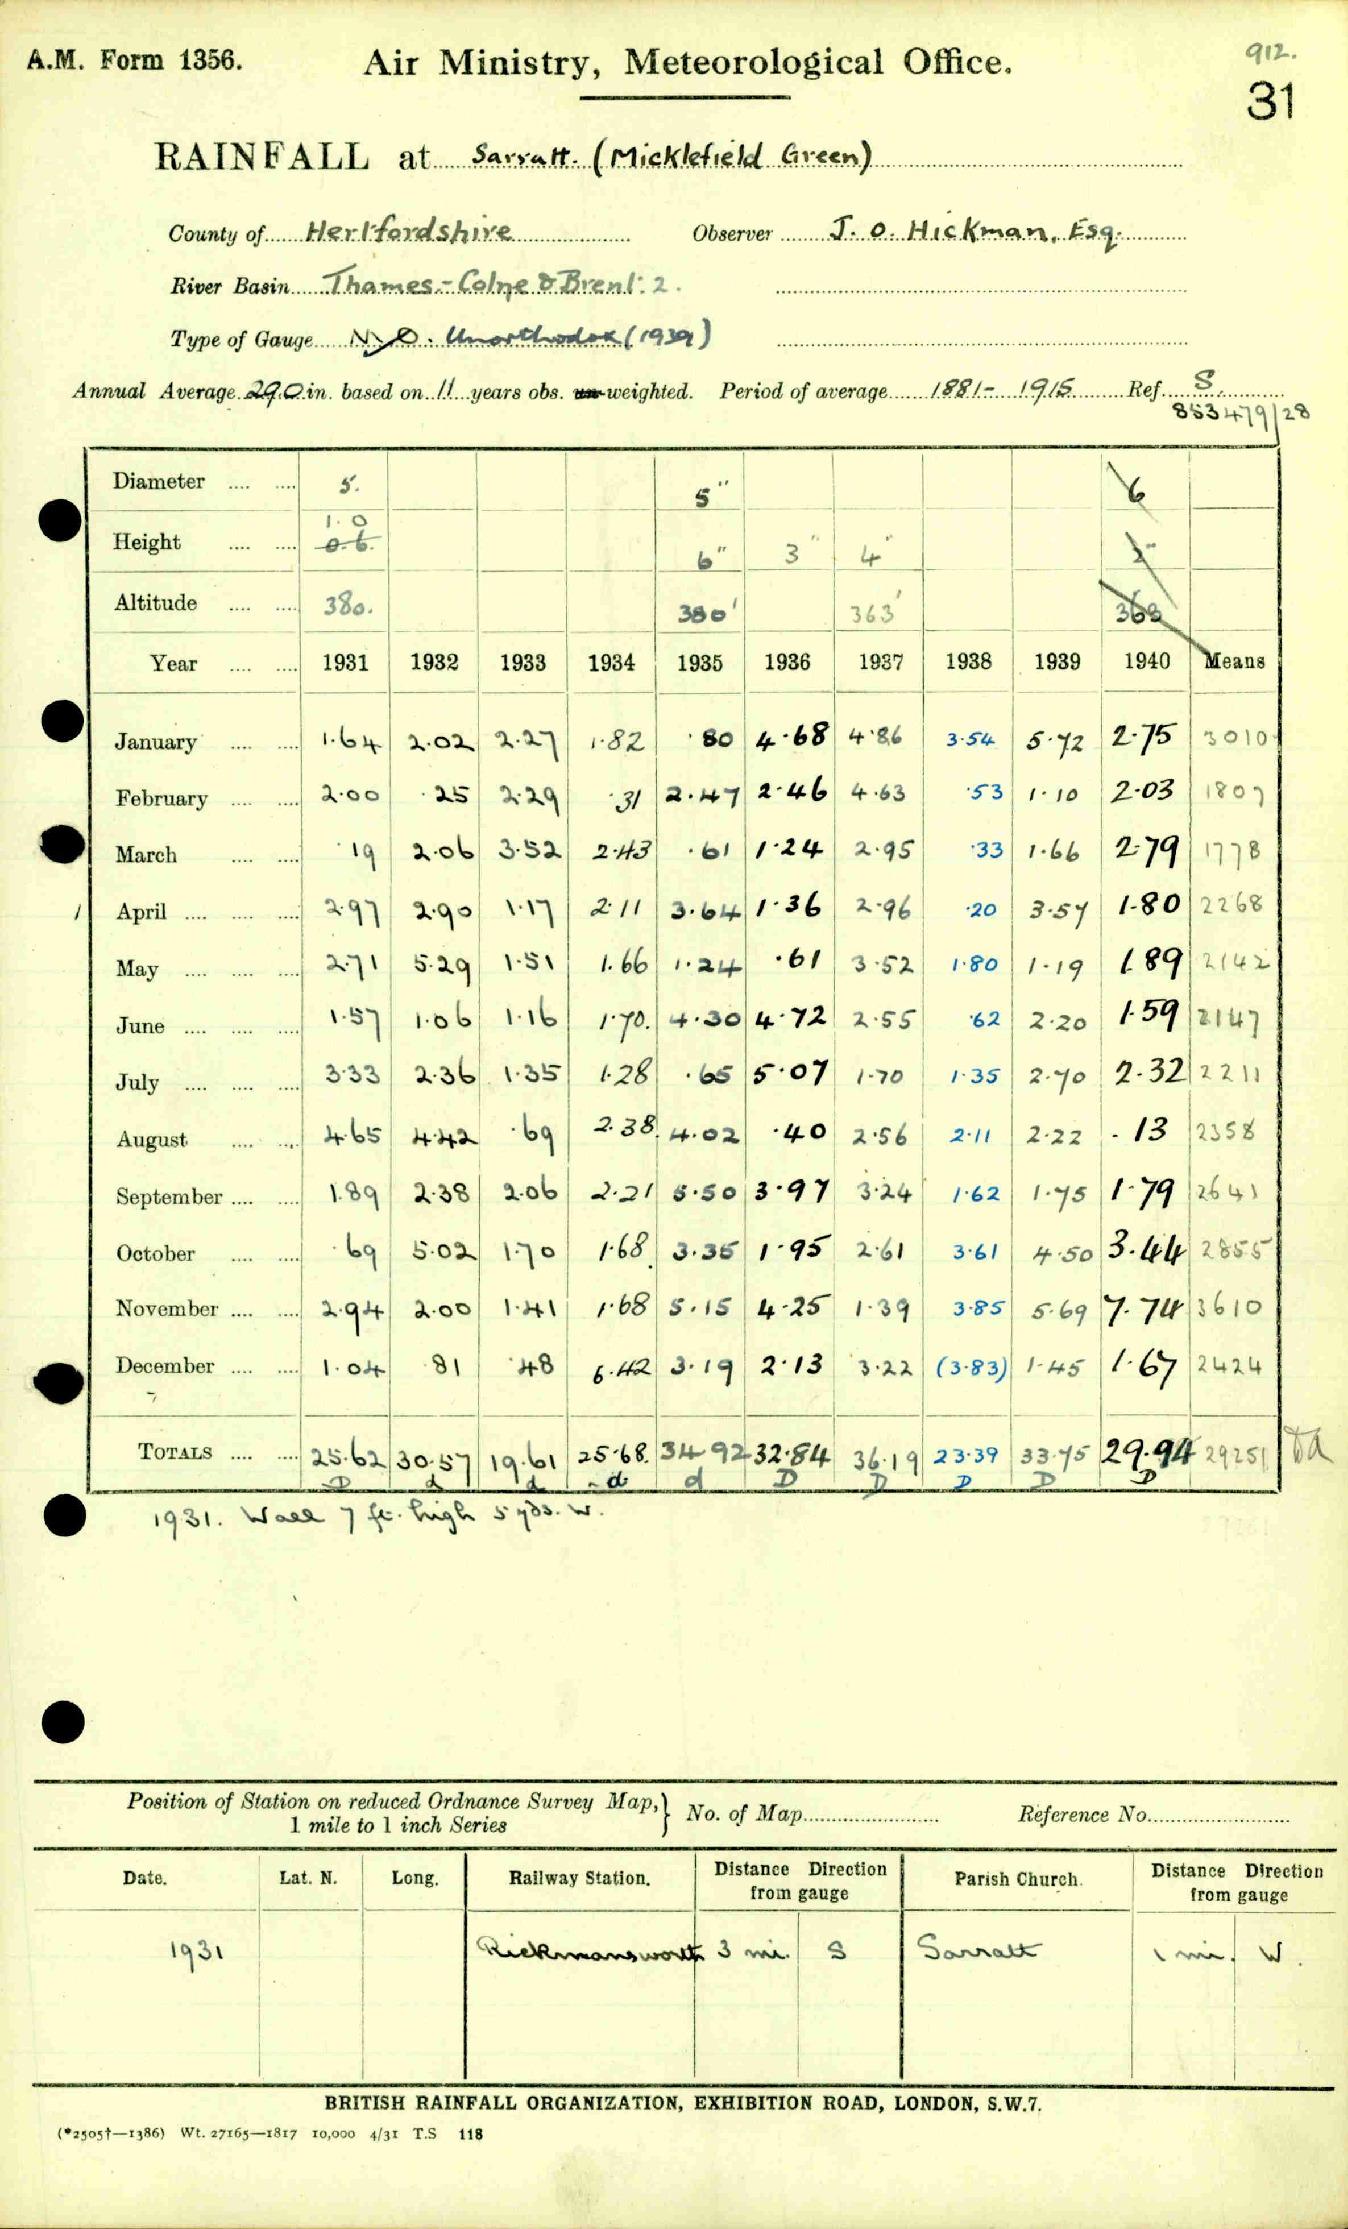 A.M. Form 1356.
Air Ministry, Meteorological Office.
912.
31
RAINFALL at Sarratt. (Micklefield Green)
County of Hertfordshire Observer J. O. Hickman, Esq.
River Basin Thames - Colne & Brent. 2.
Type of Gauge Unorthodox (1939)
Annual Average 29.0 in. based on 11 years obs. un-weighted. Period of average 1881 - 1915 Ref. S.
853479/28
Diameter 5. 5" 6
Height 1.0 0.6. 6" 3" 4" 3"
Altitude 380. 380' 363' 363
Year 1931 1932 1933 1934 1935 1936 1937 1938 1939 1940 Means
January 1.64 2.02 2.27 1.82 .80 4.68 4.86 3.54 5.72 2.75 3010
February 2.00 .25 2.29 .31 2.47 2.46 4.63 .53 1.10 2.03 1807
March .19 2.06 3.52 2.43 .61 1.24 2.95 .33 1.66 2.79 1778
April 2.97 2.90 1.17 2.11 3.64 1.36 2.96 .20 3.57 1.80 2268
May 2.71 5.29 1.51 1.66 1.24 .61 3.52 1.80 1.19 1.89 2142
June 1.57 1.06 1.16 1.70. 4.30 4.72 2.55 .62 2.20 1.59 2147
July 3.33 2.36 1.35 1.28 .65 5.07 1.70 1.35 2.70 2.32 2211
August 4.65 4.42 .69 2.38. 4.02 .40 2.56 2.11 2.22 .13 2358
September 1.89 2.38 2.06 2.21 5.50 3.97 3.24 1.62 1.75 1.79 2641
October .69 5.02 1.70 1.68. 3.35 1.95 2.61 3.61 4.50 3.44 2855
November 2.94 2.00 1.41 1.68 5.15 4.25 1.39 3.85 5.69 7.74 3610
December 1.04 .81 .48 6.42 3.19 2.13 3.22 (3.83) 1.45 1.67 2424
TOTALS 25.62 30.57 19.61 25.68. 34.92 32.84 36.19 23.39 33.75 29.94 29251
D d d d d D D D D D
1931. Wall 7 ft. high 5 yds. W.
Position of Station on reduced Ordnance Survey Map,
1 mile to 1 inch Series
No. of Map Reference No.
Date. Lat. N. Long. Railway Station. Distance Direction from gauge Parish Church. Distance Direction from gauge
1931 Rickmansworth 3 mi. S Sarratt 1 mi. W.
BRITISH RAINFALL ORGANIZATION, EXHIBITION ROAD, LONDON, S.W.7.
(*2505†—1386) Wt. 27165—1817 10,000 4/31 T.S 118